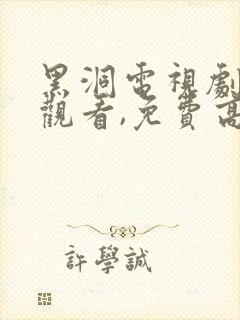 黑洞電視劇
觀看,免費高
許學誠